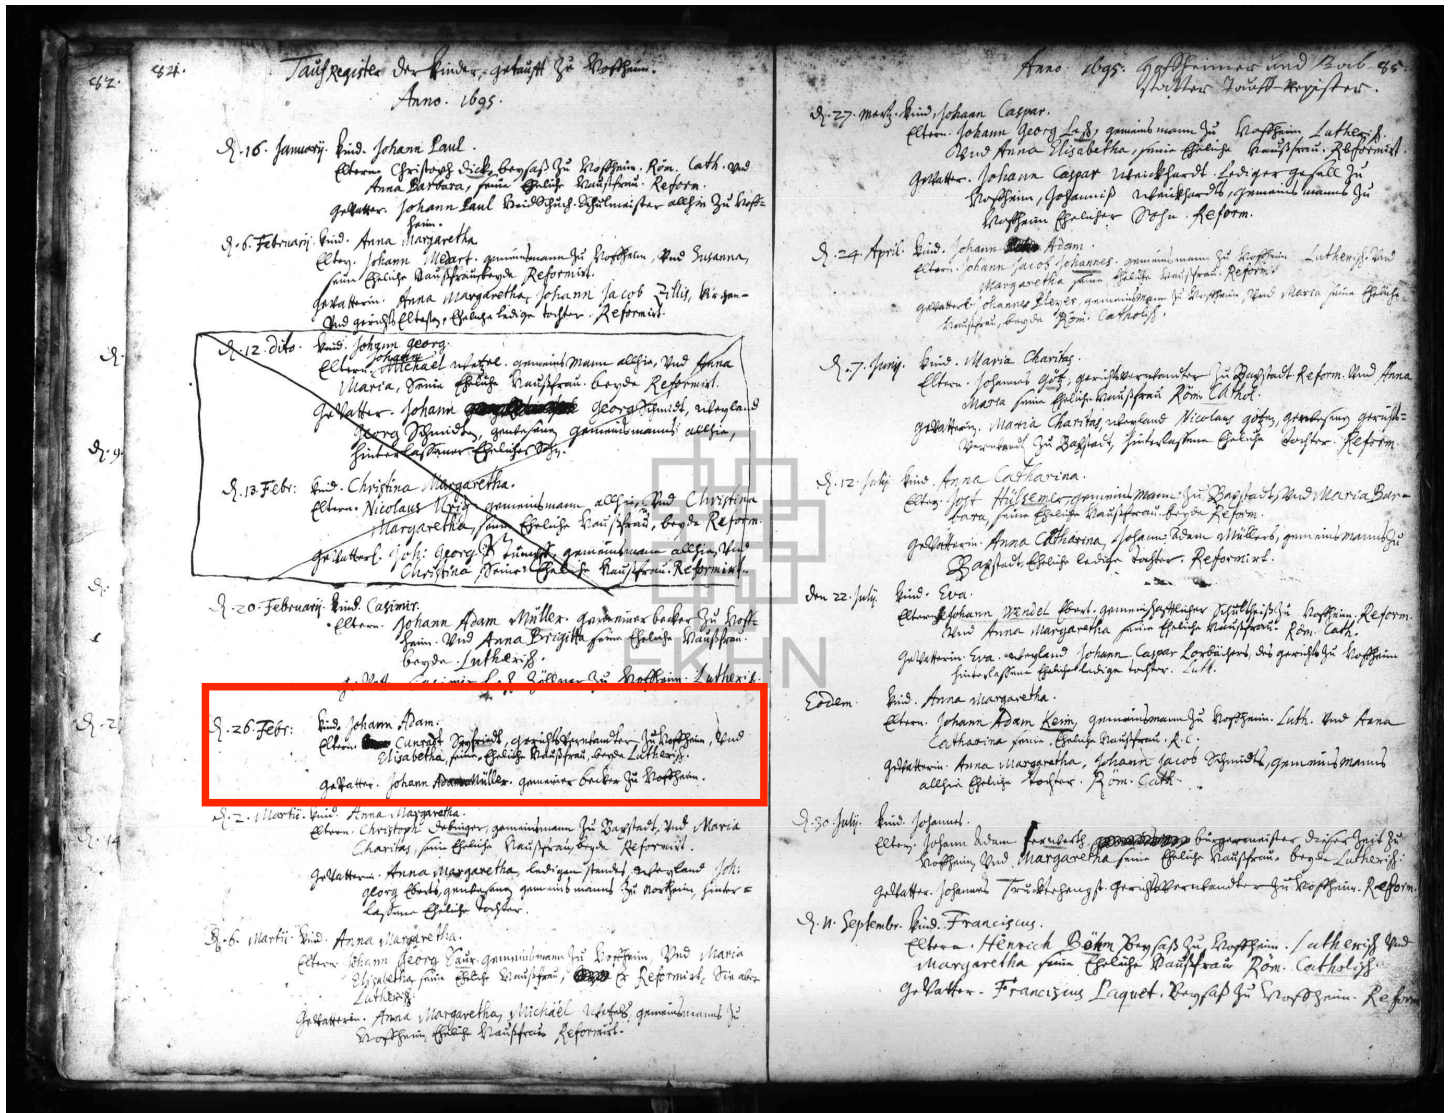 82.
84.
TauffRegister der kinder, getaufft zu Hoffheim.
Anno. 1695.
D. 16. Januarij. kind. Johann Paul.
Eltern. Christoph Dick, beysaß zu Hoffheim. Röm. Cath. Vnd
Anna Barbara, seine Eheliche Haußfrau. Reform.
gevatter. Johann Paul Schulmeister allhie zu Hoff=
heim.
D. 6. Februarij. kind. Anna Margaretha
Eltern. Johann gemeinsmann zu Hoffheim, Vnd Susanna,
seine Eheliche Haußfrau beyde Reformirt.
Gevatterin. Anna Margaretha, Johann Jacob Zillis, kirchen-
Vnd gerichts Eltesten, Eheliche ledige tochter. Reformirt.
D. 12. dito. kind. Johann georg.
Johann
Eltern. Michael Wetzel. gemeinsmann allhie, Vnd Anna
Maria, seine Eheliche Haußfrau. beyde Reformirt.
Gevatter. Johann Georg Schmidt, weyland
Georg Schmidten, gewesenen gemeinsmanns allhie,
hinterlassener Ehelicher Sohn.
D. 13. Febr: kind. Christina Margaretha.
Eltern. Nicolaus gemeinsmann allhie, Vnd Christina
Margaretha, seine Eheliche Haußfrau, beyde Reform.
gevatterl. Joh: Georg gemeinsmann allhie, Vnd
Christina, Seine Eheliche Haußfrau. Reformirt.
D. 20. Februarij. kind. Casimir.
Eltern. Johann Adam Müller. gemeiner becker zu Hoff=
heim. Vnd Anna Brigitta seine Eheliche Haußfrau.
beyde Lutherisch.
gevatt. Casimir Zöllner zu Hoffheim. Lutherisch.
D. 26. Febr: kind. Johann Adam.
Eltern. Cunradt Seyfriedt, gerichtsverwandter zu Hoffheim, Vnd
Elisabetha, seine Eheliche Haußfrau, beyde Lutherisch.
gevatter. Johann Adam Müller. gemeiner becker zu Hoffheim.
D. 2. Martii. kind. Anna Margaretha.
Eltern. Christoph Debinger, gemeinsmann zu Bobstadt, Vnd Maria
Charitas, seine Eheliche Haußfrau, beyde Reformirt.
Gevatterin. Anna Margaretha, ledigen standes, weyland Joh:
georg Eberts, gewesenen gemeinsmanns zu Northeim, hinter=
lassene Eheliche tochter.
D. 6. Martii. kind. Anna Margaretha.
Eltern. Johann Georg Saur. gemeinsmann zu Hoffheim, Vnd Maria
Elisabetha seine Eheliche Haußfrau, Er Reformirt, Sie aber
Lutherisch.
Gevatterin. Anna Margaretha, Michael Wetzels, gemeinsmanns zu
Hoffheim, Eheliche Haußfrau Reformirt.
Anno. 1695. Hoffheimer und Bob- 85.
statter Tauff-Register.
D. 27. Mertz. kind, Johann Caspar.
Eltern. Johann Georg gemeinsmann zu Hoffheim, Lutherisch.
Vnd Anna Elisabetha, seine Eheliche Haußfrau. Reformirt.
Gevatter. Johann Caspar Weickhardt. lediger gesell zu
Hoffheim, Johanniß Weickhardts, gemeinsmanns zu
Hoffheim Ehelicher Sohn. Reform.
D. 24. April. kind. Johann Adam.
Eltern. Johann Jacob Johannes. gemeinsmann zu Hoffheim Lutherisch. Vnd
Margaretha seine Eheliche Haußfrau. Reform.
gevatterl. Johannes gemeinsmann zu Hoffheim Vnd Maria seine Eheliche
Haußfrau, beyde Röm. Catholisch.
D. 7. Junij. kind. Maria Charitas.
Eltern. Johannes Götz, gerichtsverwandter zu Bobstadt Reform. Vnd Anna
Maria seine Eheliche Haußfrau Röm. Cathol.
gevatterin. Maria Charitas, weyland Nicolaus götzen, gewesenen gerichts=
verwandten zu Bobstadt, hinterlassene Eheliche tochter. Reform.
D. 12. Julij kind. Anna Catharina.
Eltern. Jost gemeinsmann zu Bobstadt, Vnd Maria Bar=
bara, seine Eheliche Haußfrau. beyde Reform.
gevatterin. Anna Catharina, Johann Adam Müllers, gemeinsmanns zu
Bobstadt, Eheliche ledige tochter. Reformirt.
den 22. Julij. kind. Eva.
Eltern. Johann Wendel Ebert. gemeinschafftlicher Schultheiß zu Hoffheim. Reform.
Vnd Anna Margaretha seine Eheliche Haußfrau. Röm. Cath.
Gevatterin. Eva. weyland Johann Caspar Lorbächers, des gerichts zu Hoffheim
hinterlassene Eheliche ledige tochter. Luth.
Eodem. kind. Anna Margaretha.
Eltern. Johann Adam Keim, gemeinsmann zu Hoffheim. Luth. Vnd Anna
Catharina seine Eheliche Haußfrau. R.C.
gevatterin. Anna Margaretha, Johann Jacob Schmidts, gemeinsmanns
allhie Eheliche tochter. Röm. Cath.
D. 30. Julij. kind. Johannes.
Eltern. Johann Adam burgermeister dieser Zeit zu
Hoffheim, Vnd Margaretha seine Eheliche Haußfrau. beyde Lutherisch.
Gevatter. Johannes gerichtsverwandter zu Hoffheim. Reform.
D. 11. Septembr. kind. Franciscus.
Eltern. Henrich Böhm Beysaß zu Hoffheim. Lutherisch Vnd
Margaretha seine Eheliche Haußfrau Röm. Catholisch.
Gevatter. Franciscus Laquet. Beysaß zu Hoffheim. Reform
EKHN